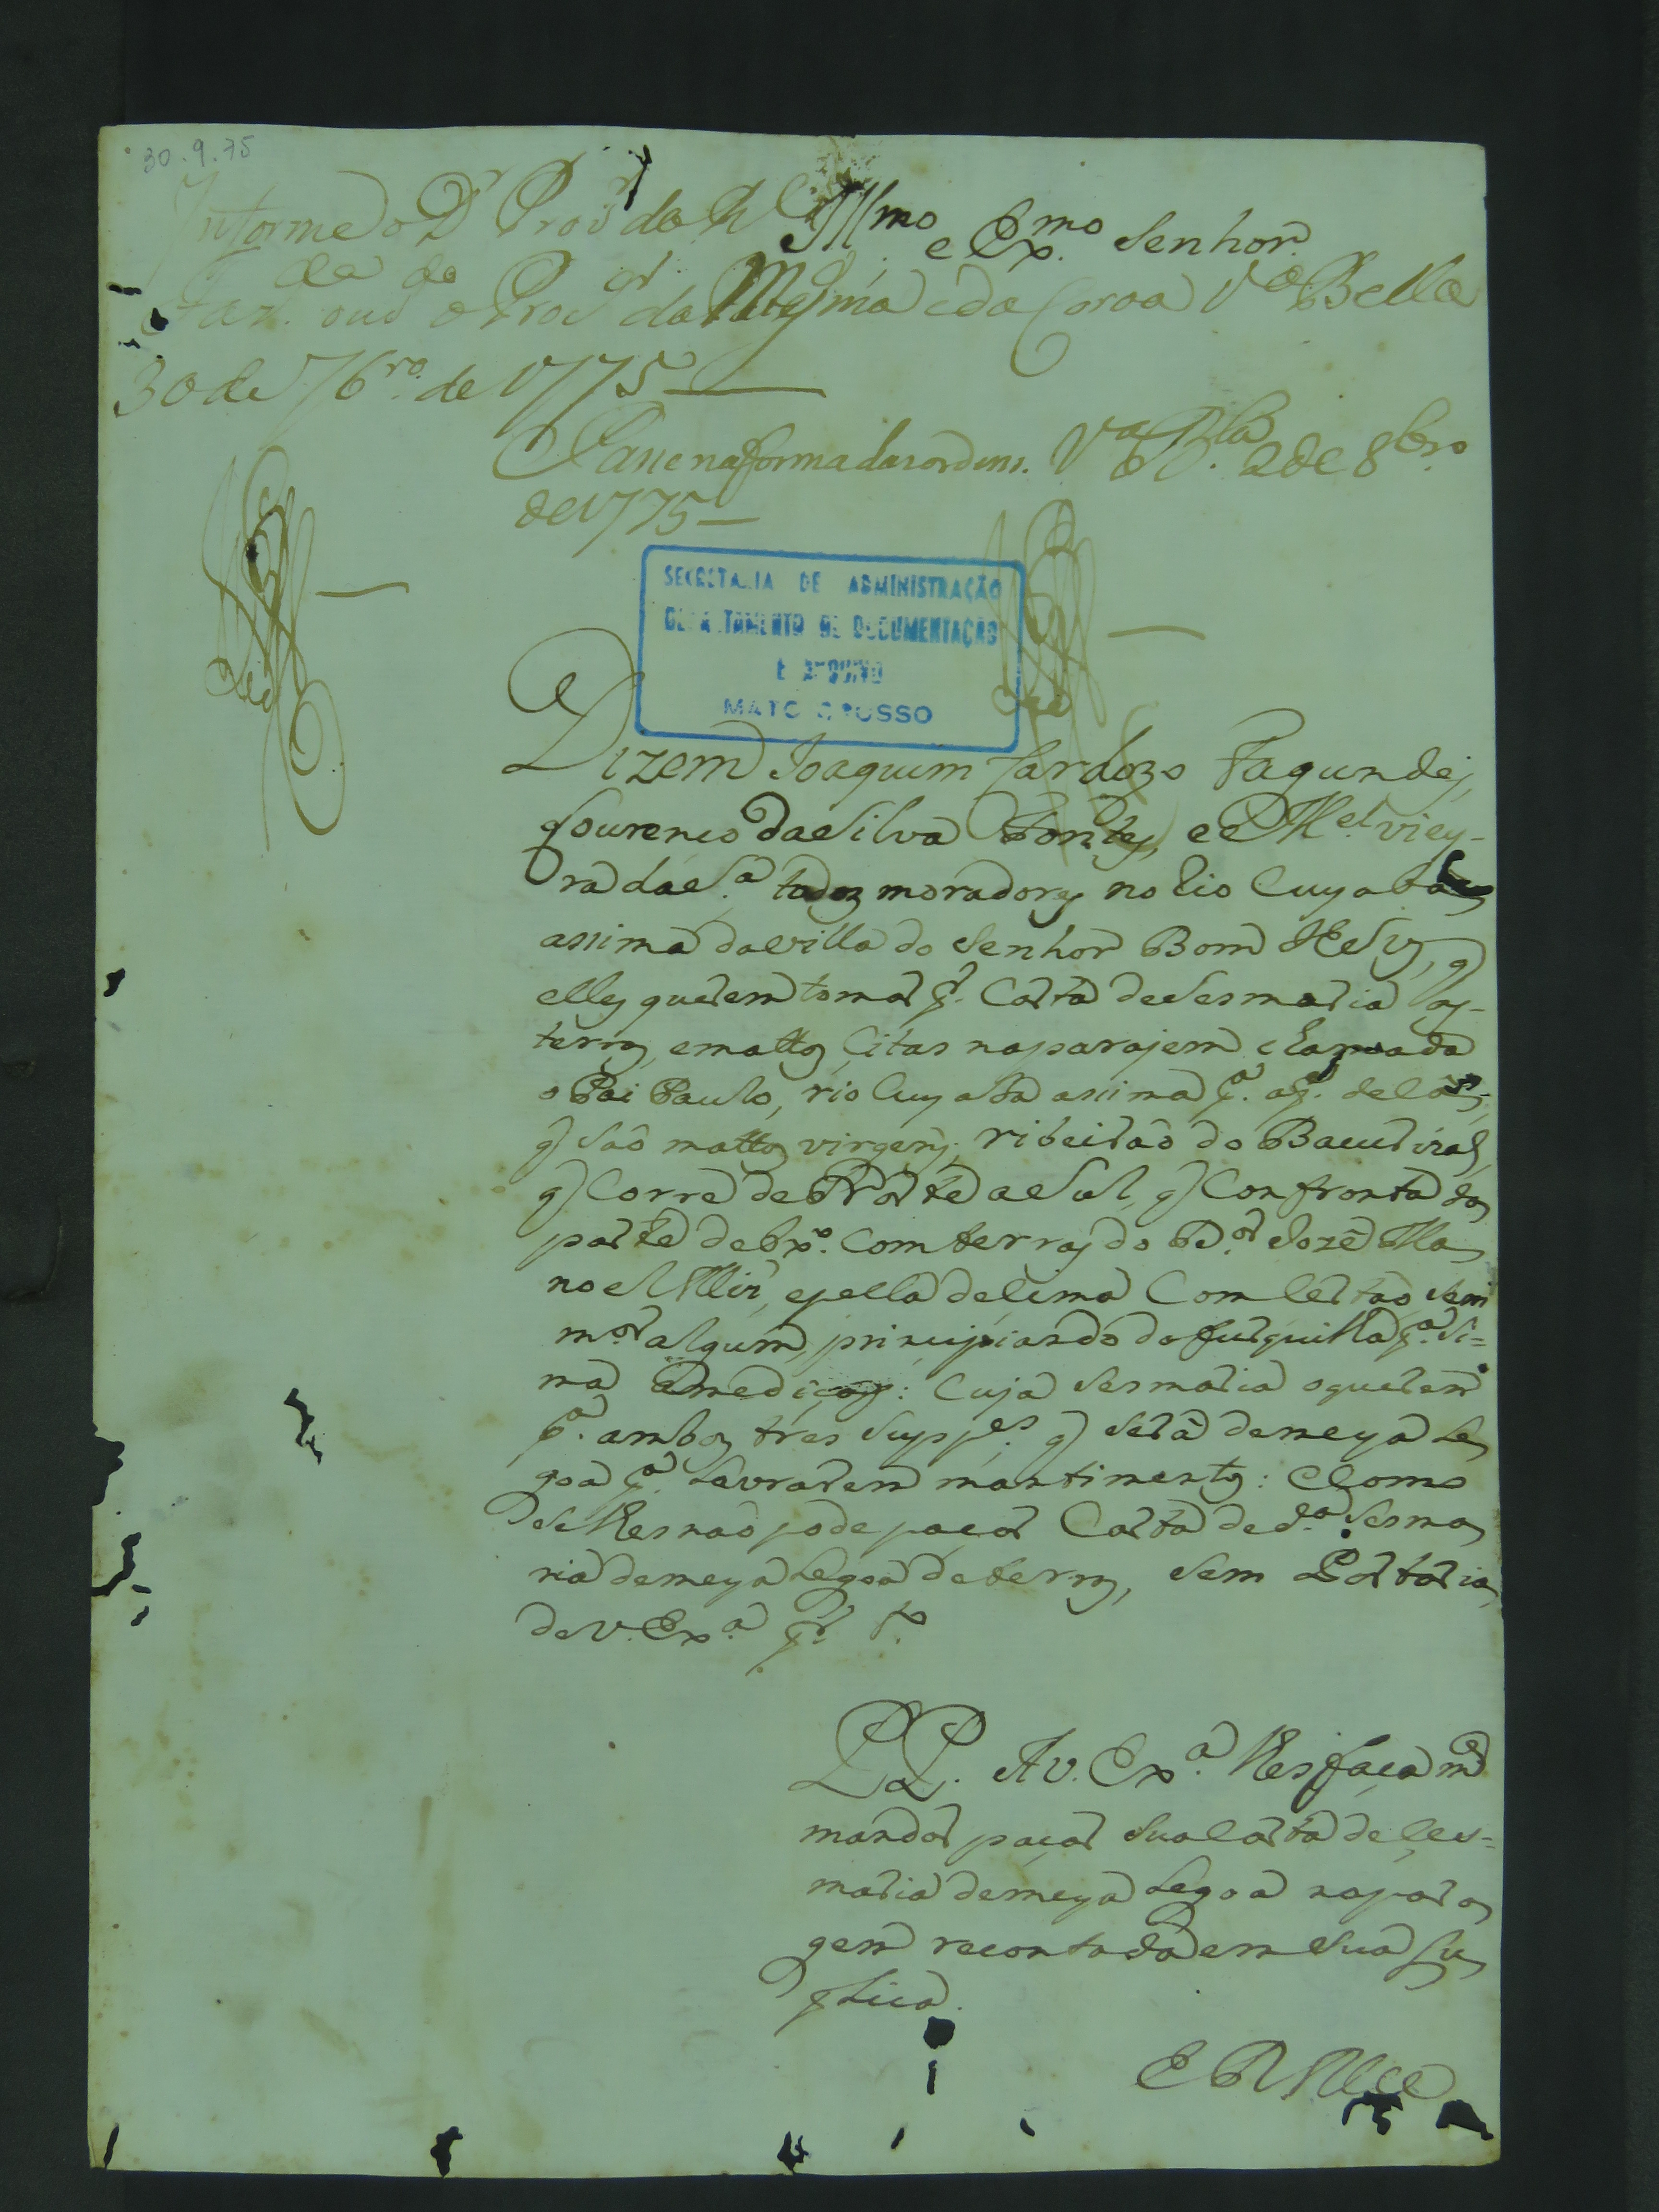 30.9.75
Informe o Dr. Prov.or da R.
Ill.mo e Ex.mo Senhor
Faz.da ouv.do o Proc.or da Mesma e da Coroa V.a Bella
30 de 7bro. de 1775
Passe na forma das ordens. V.a B.la 2 de 8bro.
de 1775
SECRETARIA DE ADMINISTRAÇÃO
DEPARTAMENTO DE DOCUMENTAÇÃO
E ARQUIVO
MATO GROSSO
Dizem Joaquim Cardozo Fagundes,
Lourenço da Silva Pontes, e M.el viey-
ra da S.a todos moradores no Rio Cuyaba
assima da villa do Senhor Bom Jesus, q
elles querem tomar p.r Carta de Sesmaria as
terras, e mattos, citas na parajem chamada
o Pai Paulo, rio Cuyaba assima p.a a p.te de
q são mattos virgens, ribeirão do
q Corre de Norte a Sul, q Confronta da
parte de bx.o Com terras do Jozé Ma
noel e pella de Sima Com Certão, sem
m.or algum, principiando da forquilha p.a Si-
ma a medição: Cuja Sesmaria o querem
p.a ambos tres Supp.es q será de meya Le
goa p.a Lavrarem mantimentos: E Como
se lhes não pode paçar Carta de d.a Sesma
ria de meya Legoa de terras, sem Portaria
de V. Ex.a p.r t.o
PP. A V. Ex.a lhes faça m.ce
mandar paçar sua Carta de Ses-
maria de meya Legoa na para
gem recontada em sua Su
plica.
E R M.ce